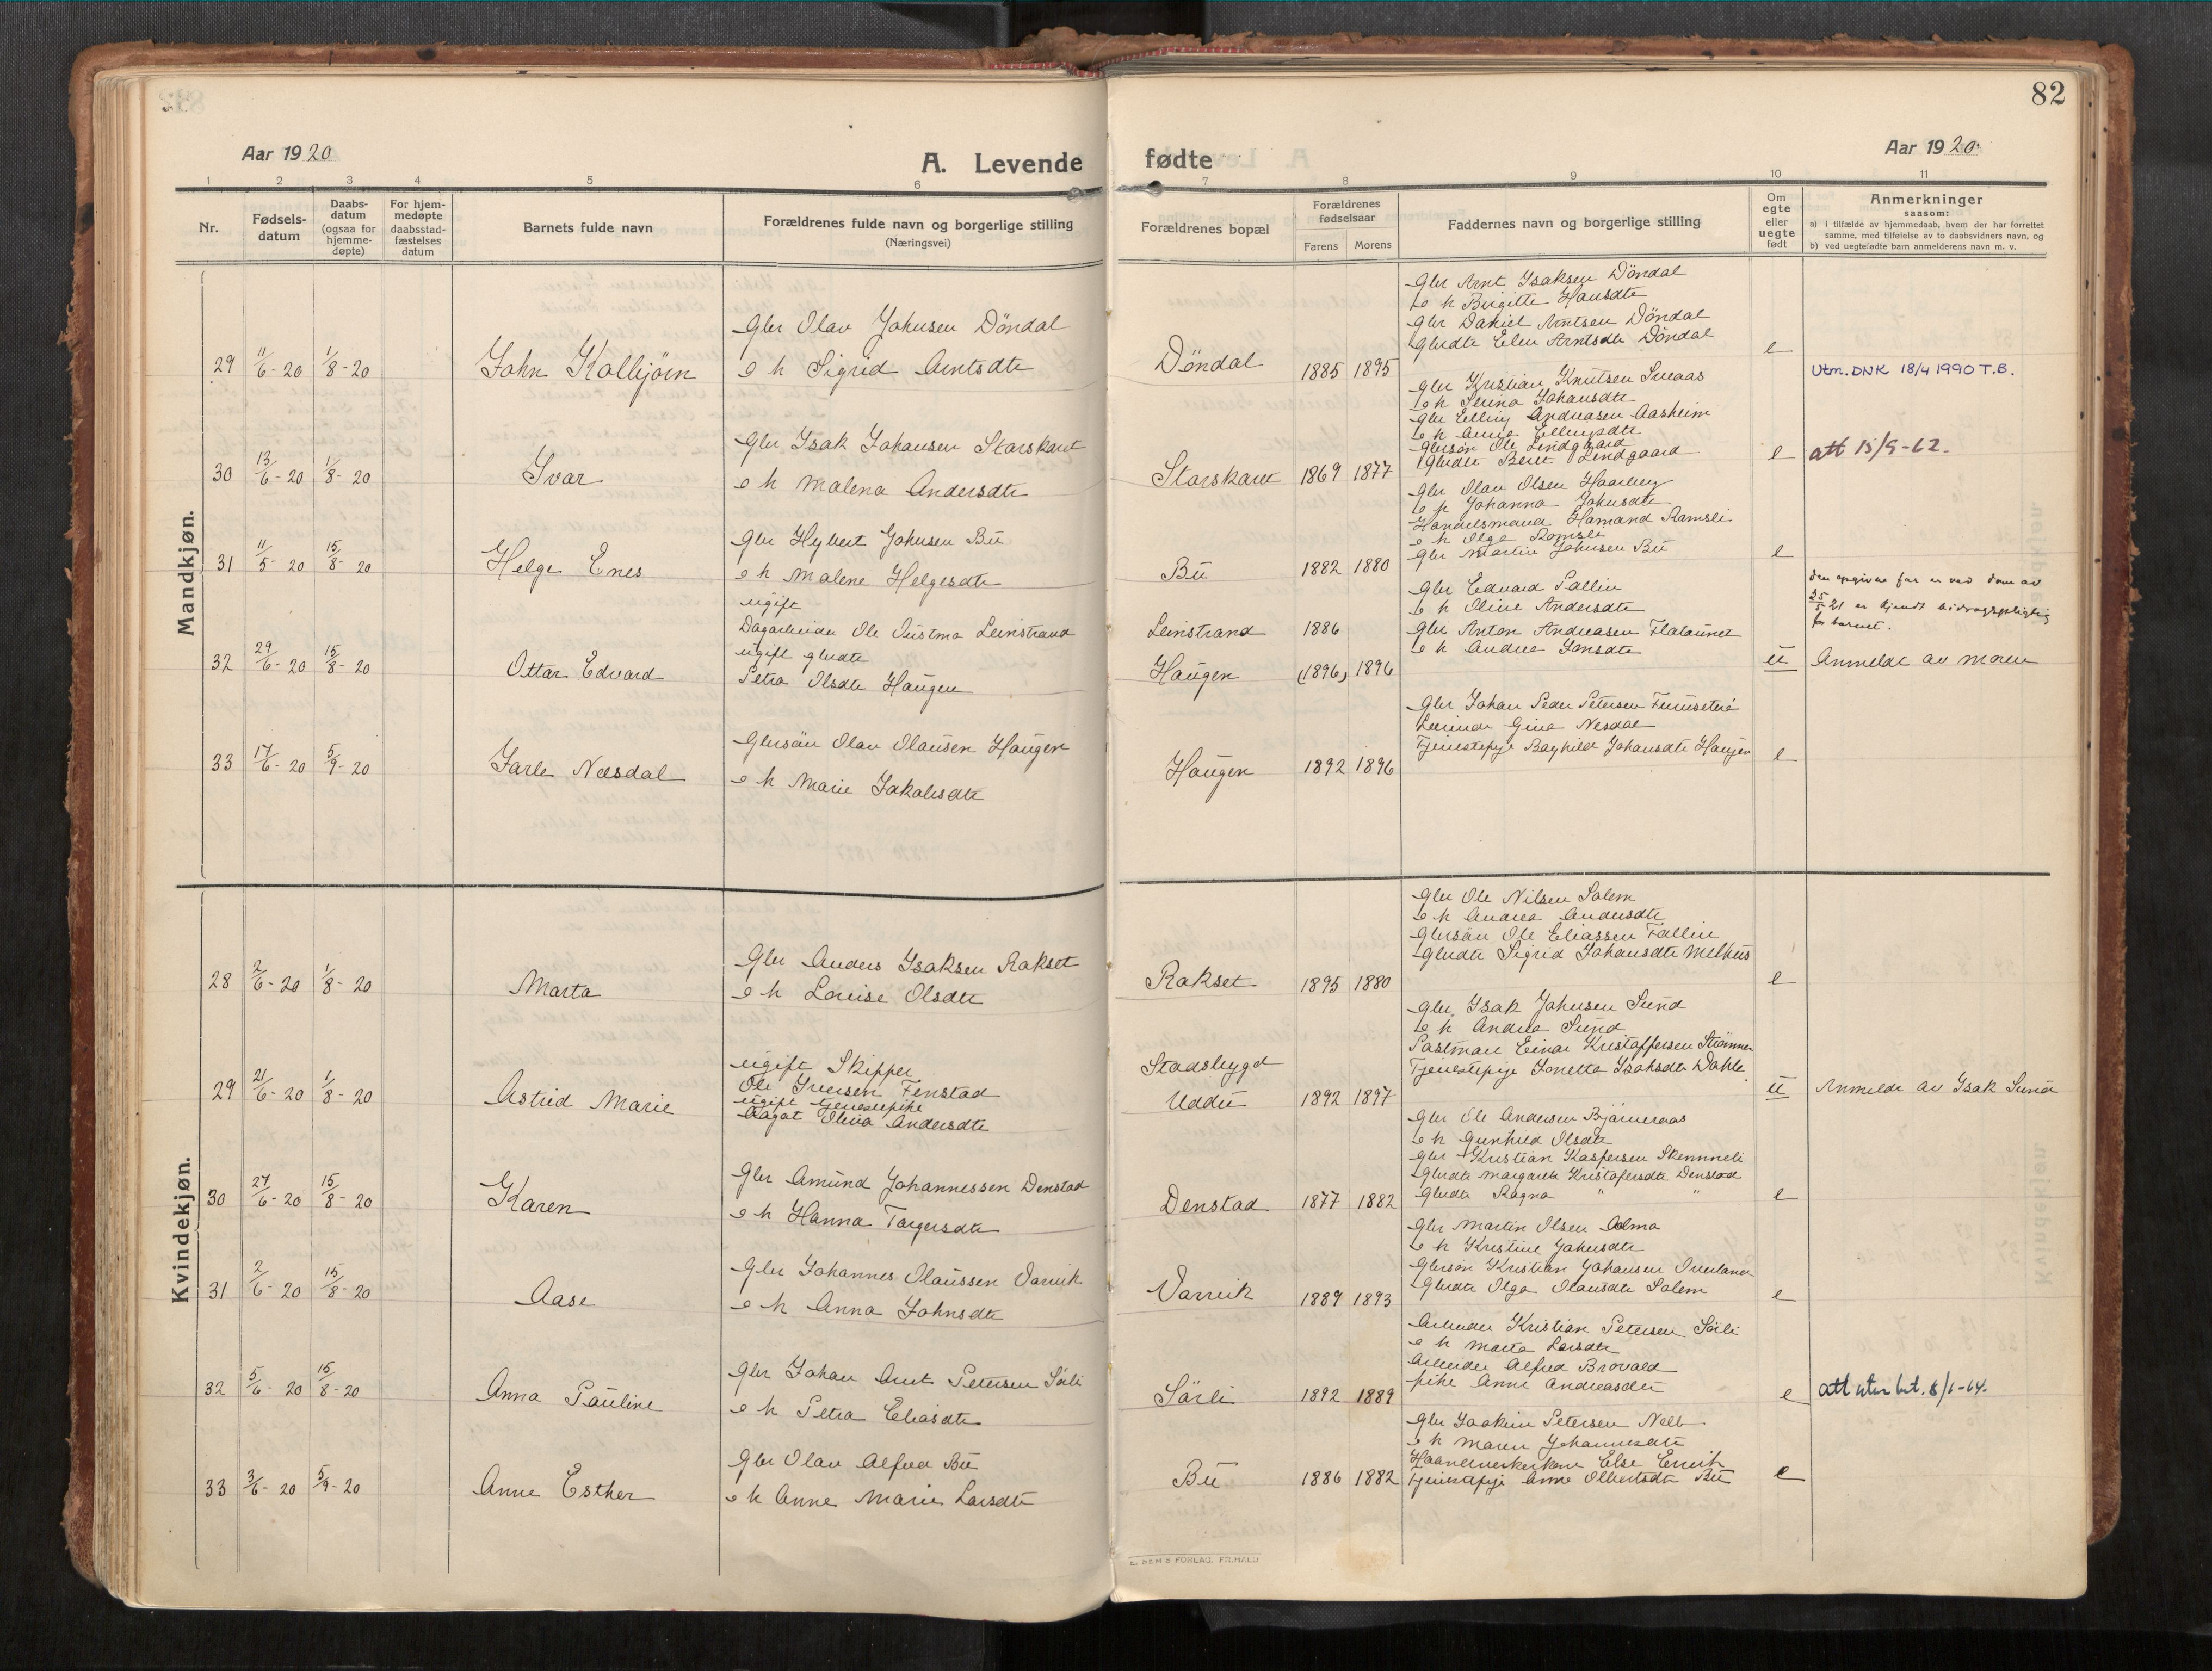 82
Aar 1920
A. Levende
fødte
Aar 1920
1 2 3 4 5 6 7 8 9 10 11
Nr.
Fødsels-
datum
Daabs-
datum
(ogsaa for
hjemme-
døpte)
For hjem-
medøpte
daabsstad-
fæstelses
datum
Barnets fulde navn
Forældrenes fulde navn og borgerlige stilling
(Næringsvei)
Forældrenes bopæl
Forældrenes
fødselsaar
Farens Morens
Faddernes navn og borgerlige stilling
Om
egte
eller
uegte
født
Anmerkninger
saasom:
a) i tilfælde av hjemmedaab, hvem der har forrettet
samme, med tilføielse av to daabsvidners navn, og
b) ved uegtefødte barn anmelderens navn m. v.
Mandkjøn.
29 11/6-20 1/8-20 John Kolbjörn
Gbr Olav Johnsen Döndal
o h Sigrid Arntsdtr
Döndal 1885 1895
Gbr Arnt Isaksen Döndal
o h Birgitte Hansdtr
Gbr Daniel Arntsen Döndal
Gbrdtr Elen Arntsdtr Döndal
e
Utm. DNK 18/4 1990 T.B.
30 13/6-20 1/8-20 Ivar
Gbr Isak Johansen Storskaret
o h Malena Andersdtr
Storskaret 1869 1877
Gbr Kristian Knutsen
o h Johansdtr
Gbr Elling Andreasen Aasheim
o h Anne Ellingsdtr
Gbrsøn Ole Lindgaard
Gbrdtr Beret Lindgaard
e
att 15/9-62.
31 11/5-20 15/8-20 Helge Enes
Gbr Hybert Johnsen Bü
o h Malene Helgesdtr
Bü 1882 1880
Gbr Olav Olsen
o h Johanna Johnsdtr
Handelsmand Hamand Ramsli
o h Olga Ramsli
Gbr Martin Johnsen Bü
e
32 29/6-20 15/8-20 Ottar Edvard
ugift
Dagarbeider Ole Leinstrand
ugift gbrdtr
Petra Olsdtr Haugen
Leinstrand 1886
Haugen (1896) 1896
Gbr Edvard Sallin
o h Oline Andersdtr
Gbr Anton Andreasen Flataunet
o h Andrea Jonsdtr
u
den opgivne far er ved dom av
25/5 21 er kjendt bidragspligtig
for barnet.
Anmeldt av moren
33 17/6-20 5/9-20 Jarle Næsdal
Gbrsön Olav Olausen Haugen
o h Marie Jakobsdtr
Haugen 1892 1896
Gbr Johan Peder Petersen
Gina Nesdal
Tjenestepige Raghild Johansdtr Haugen
e
Kvindekjøn.
28 2/6-20 1/8-20 Marta
Gbr Anders Isaksen Rakset
o h Louise Olsdtr
Rakset 1895 1880
Gbr Ole Nilsen Solem
o h Andrea Andersdtr
Gbrsön Ole Eliassen Fallin
Gbrdtr Sigrid Johansdtr Melhus
e
29 21/6-20 1/8-20 Astrid Marie
ugift Skipper
Ole Iversen Fenstad
ugift tjenestepike
Aagat Olina Andersdtr
Stadsbygd
Uddu 1892 1897
Gbr. Isak Johnsen Sund
o h Andrea Sund
Postmand Einar Kristoffersen
Tjenestepige Jonetta Isaksdtr Dahle
u
Anmeldt av Isak Sund
30 27/6-20 15/8-20 Karen
Gbr Amund Johannessen Denstad
o h Hanna Torgersdtr
Denstad 1877 1882
Gbr Ole Andersen Bjørneraas
o h Gunhild Olsdtr
Gbr Kristian Kaspersen
Gbrdtr Margarete Kristofersdtr Denstad
Gbrdtr Ragna " "
e
31 2/6-20 15/8-20 Aase
Gbr Johannes Olaussen Varvik
o h Anna Johnsdtr
Varvik 1889 1893
Gbr Martin Olsen
o h Kristine Johnsdtr
Gbrsøn Kristian Johansen Overland
Gbrdtr Olga Olausdtr Solem
e
32 5/6-20 15/8-20 Anna Pauline
Gbr Johan Arnt Petersen Sörli
o h Petra Eliasdtr
Sörli 1892 1889
Arbeider Kristian Petersen Sörli
o h Marta Larsdtr
Arbeider Alfred Brovald
pike Anne Andreasdtr
e
att 8/1-64.
33 3/6-20 5/9-20 Anne Esther
Gbr Olav Alfred Bü
o h Anne Marie Larsdtr
Bü 1886 1882
Gbr Joakim Petersen
o h Maren Johannesdtr
Else
Tjenestepige Anne Olbertsdtr Bü
e